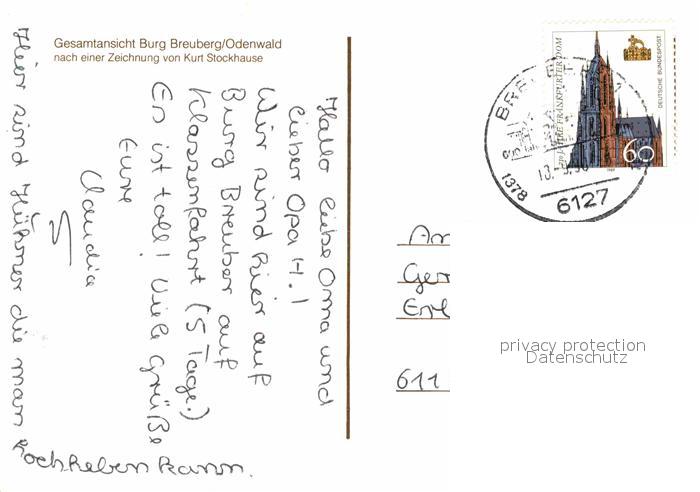 Gesamtansicht Burg Breuberg/Odenwald
nach einer Zeichnung von Kurt Stockhause
Hallo liebe Oma und
lieber Opa H.!
Wir sind hier auf
Burg Breuber auf
Klassenfahrt (5 Tage.)
Es ist toll! Viele Grüße
Eure
Claudia
Hier sind Hühner die man
hochheben kann.
FRANKFURTER DOM
DEUTSCHE BUNDESPOST
60
1378
6127
An
Ger
611
privacy protection
Datenschutz